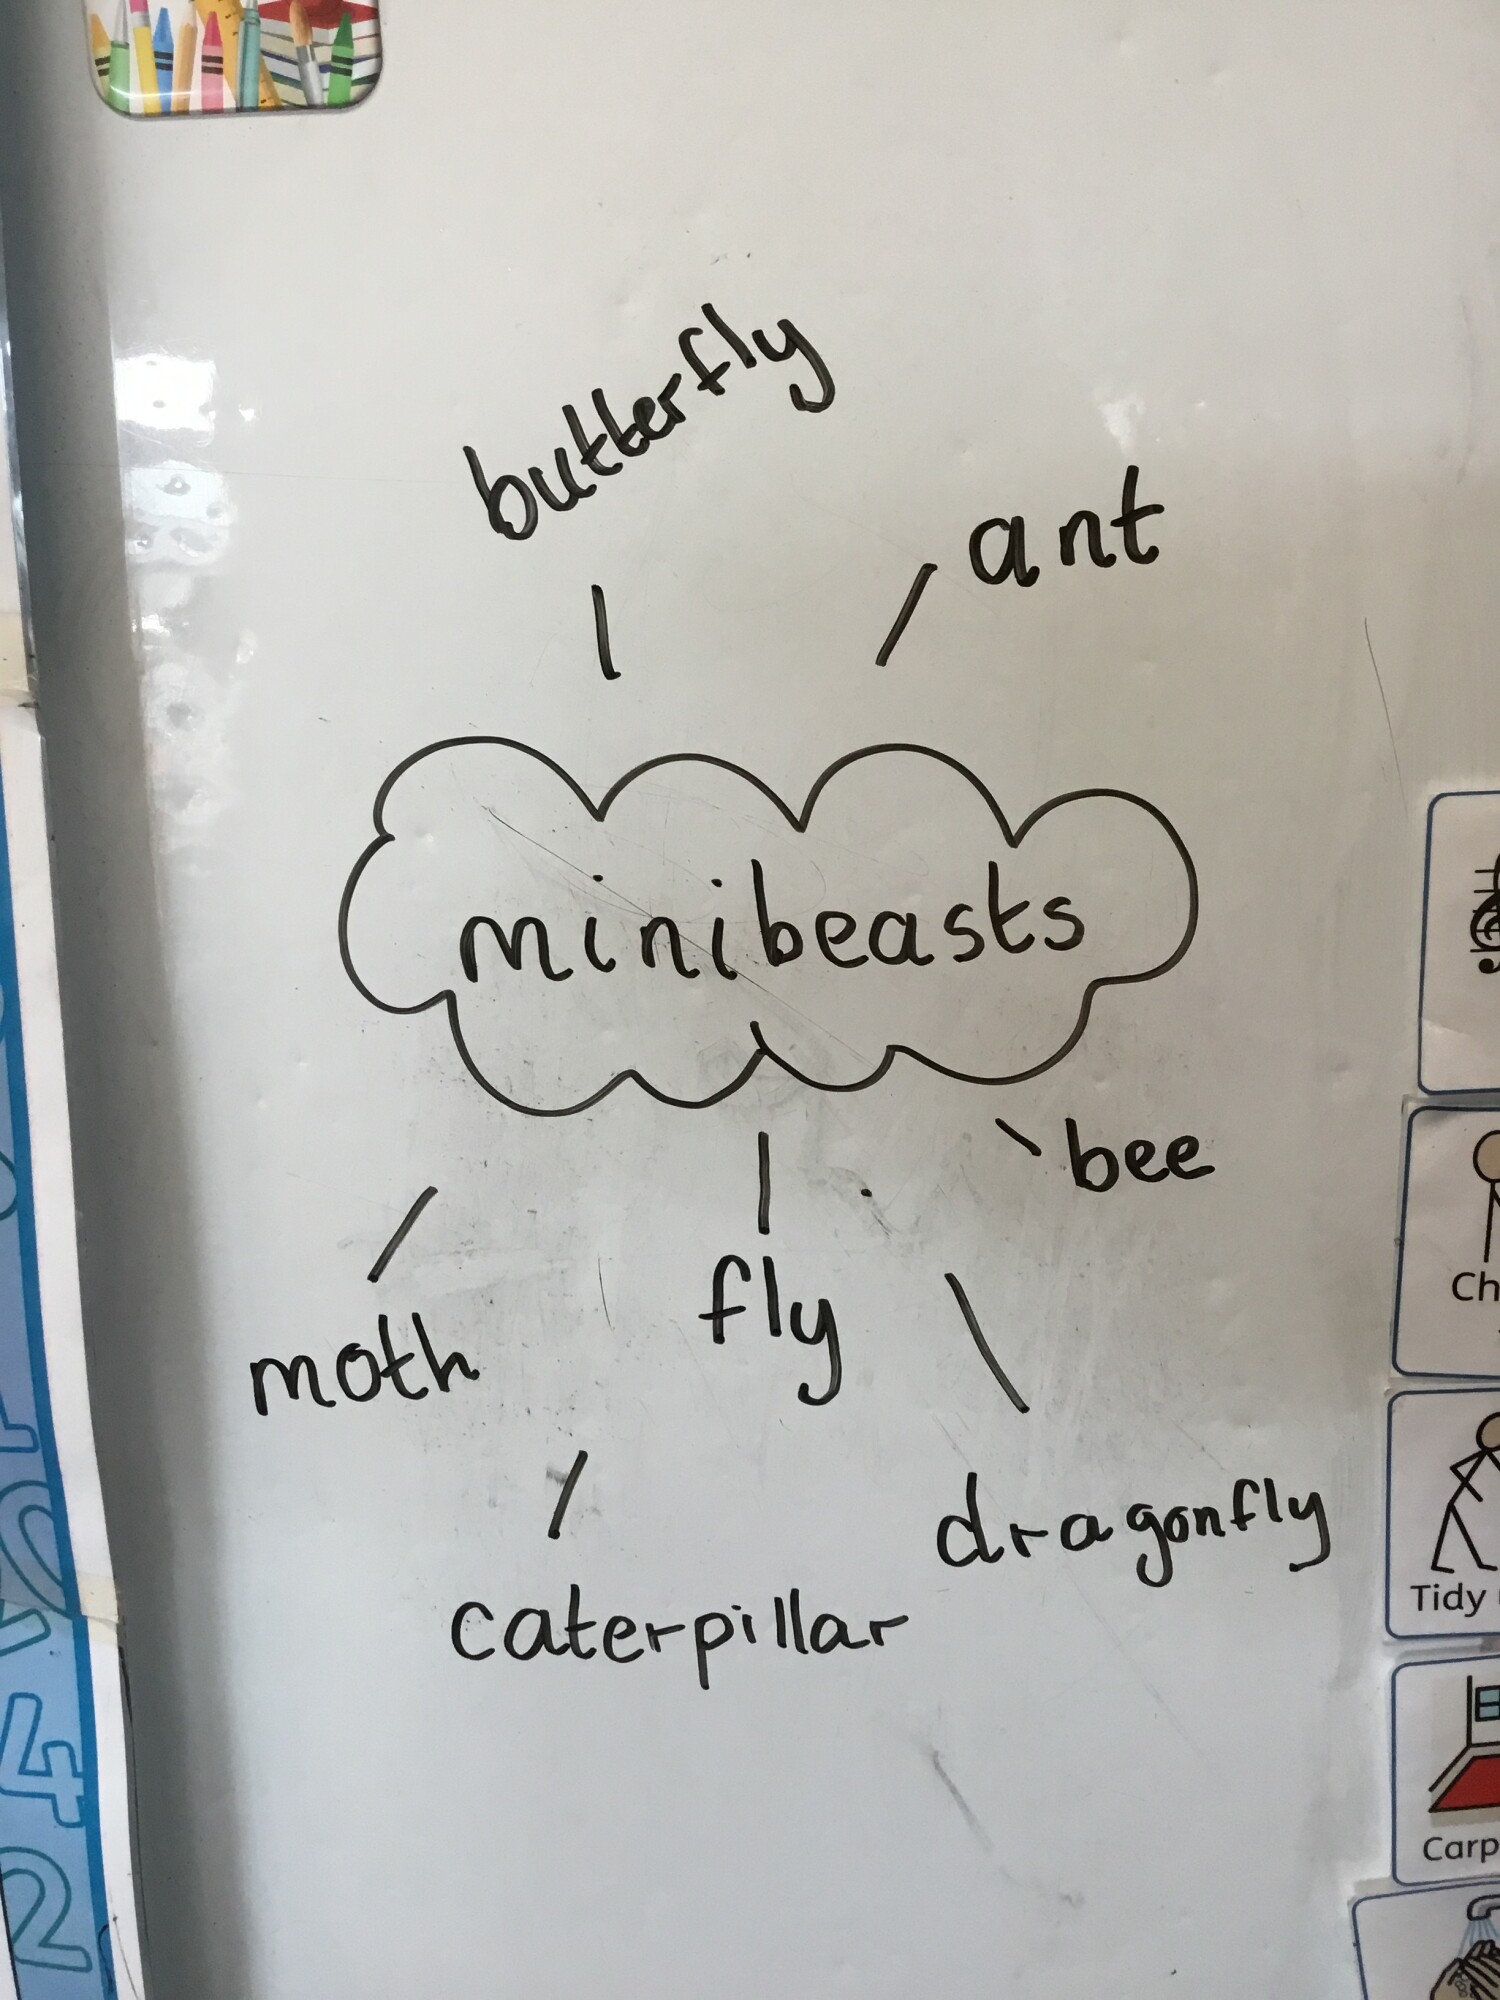 butterfly
ant
minibeasts
bee
moth
fly
dragonfly
caterpillar
Ch
Tidy
Carp
4
2